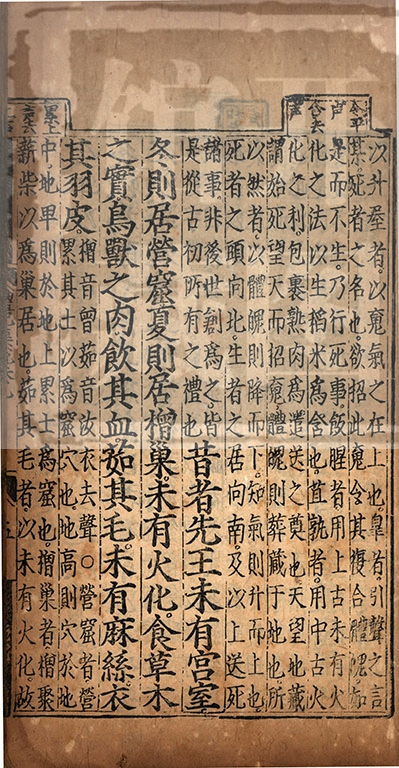 令平
含去
以升屋者以䰟氣之在上也臯者引聲之言
某死者之名也欲招此䰟令其復合體魄如
是而不生乃行死事飯腥者用上古未有火
化之法以生稻米為含也苴孰者用中古火
化之利包裹熟肉為遣送之奠也天望地藏
謂始死望天而招䰟體魄則葬藏于地也所
以然者以體魄則降而下知氣則升而上也
死者之頭向北生者之居向南及以上送死
諸事非後世創為之皆
是從古初所有之禮也
昔者先王未有宮室
冬則居營窟夏則居橧巢未有火化食草木
之實鳥獸之肉飲其血茹其毛未有麻絲衣
其羽皮
橧音曾茹音汝衣去聲○營窟者營
累其土以為窟穴也地高則穴於地
累上
中地卑則於地上累土為窟也橧巢者橧聚
薪柴以為巢居也茹其毛者以未有火化故